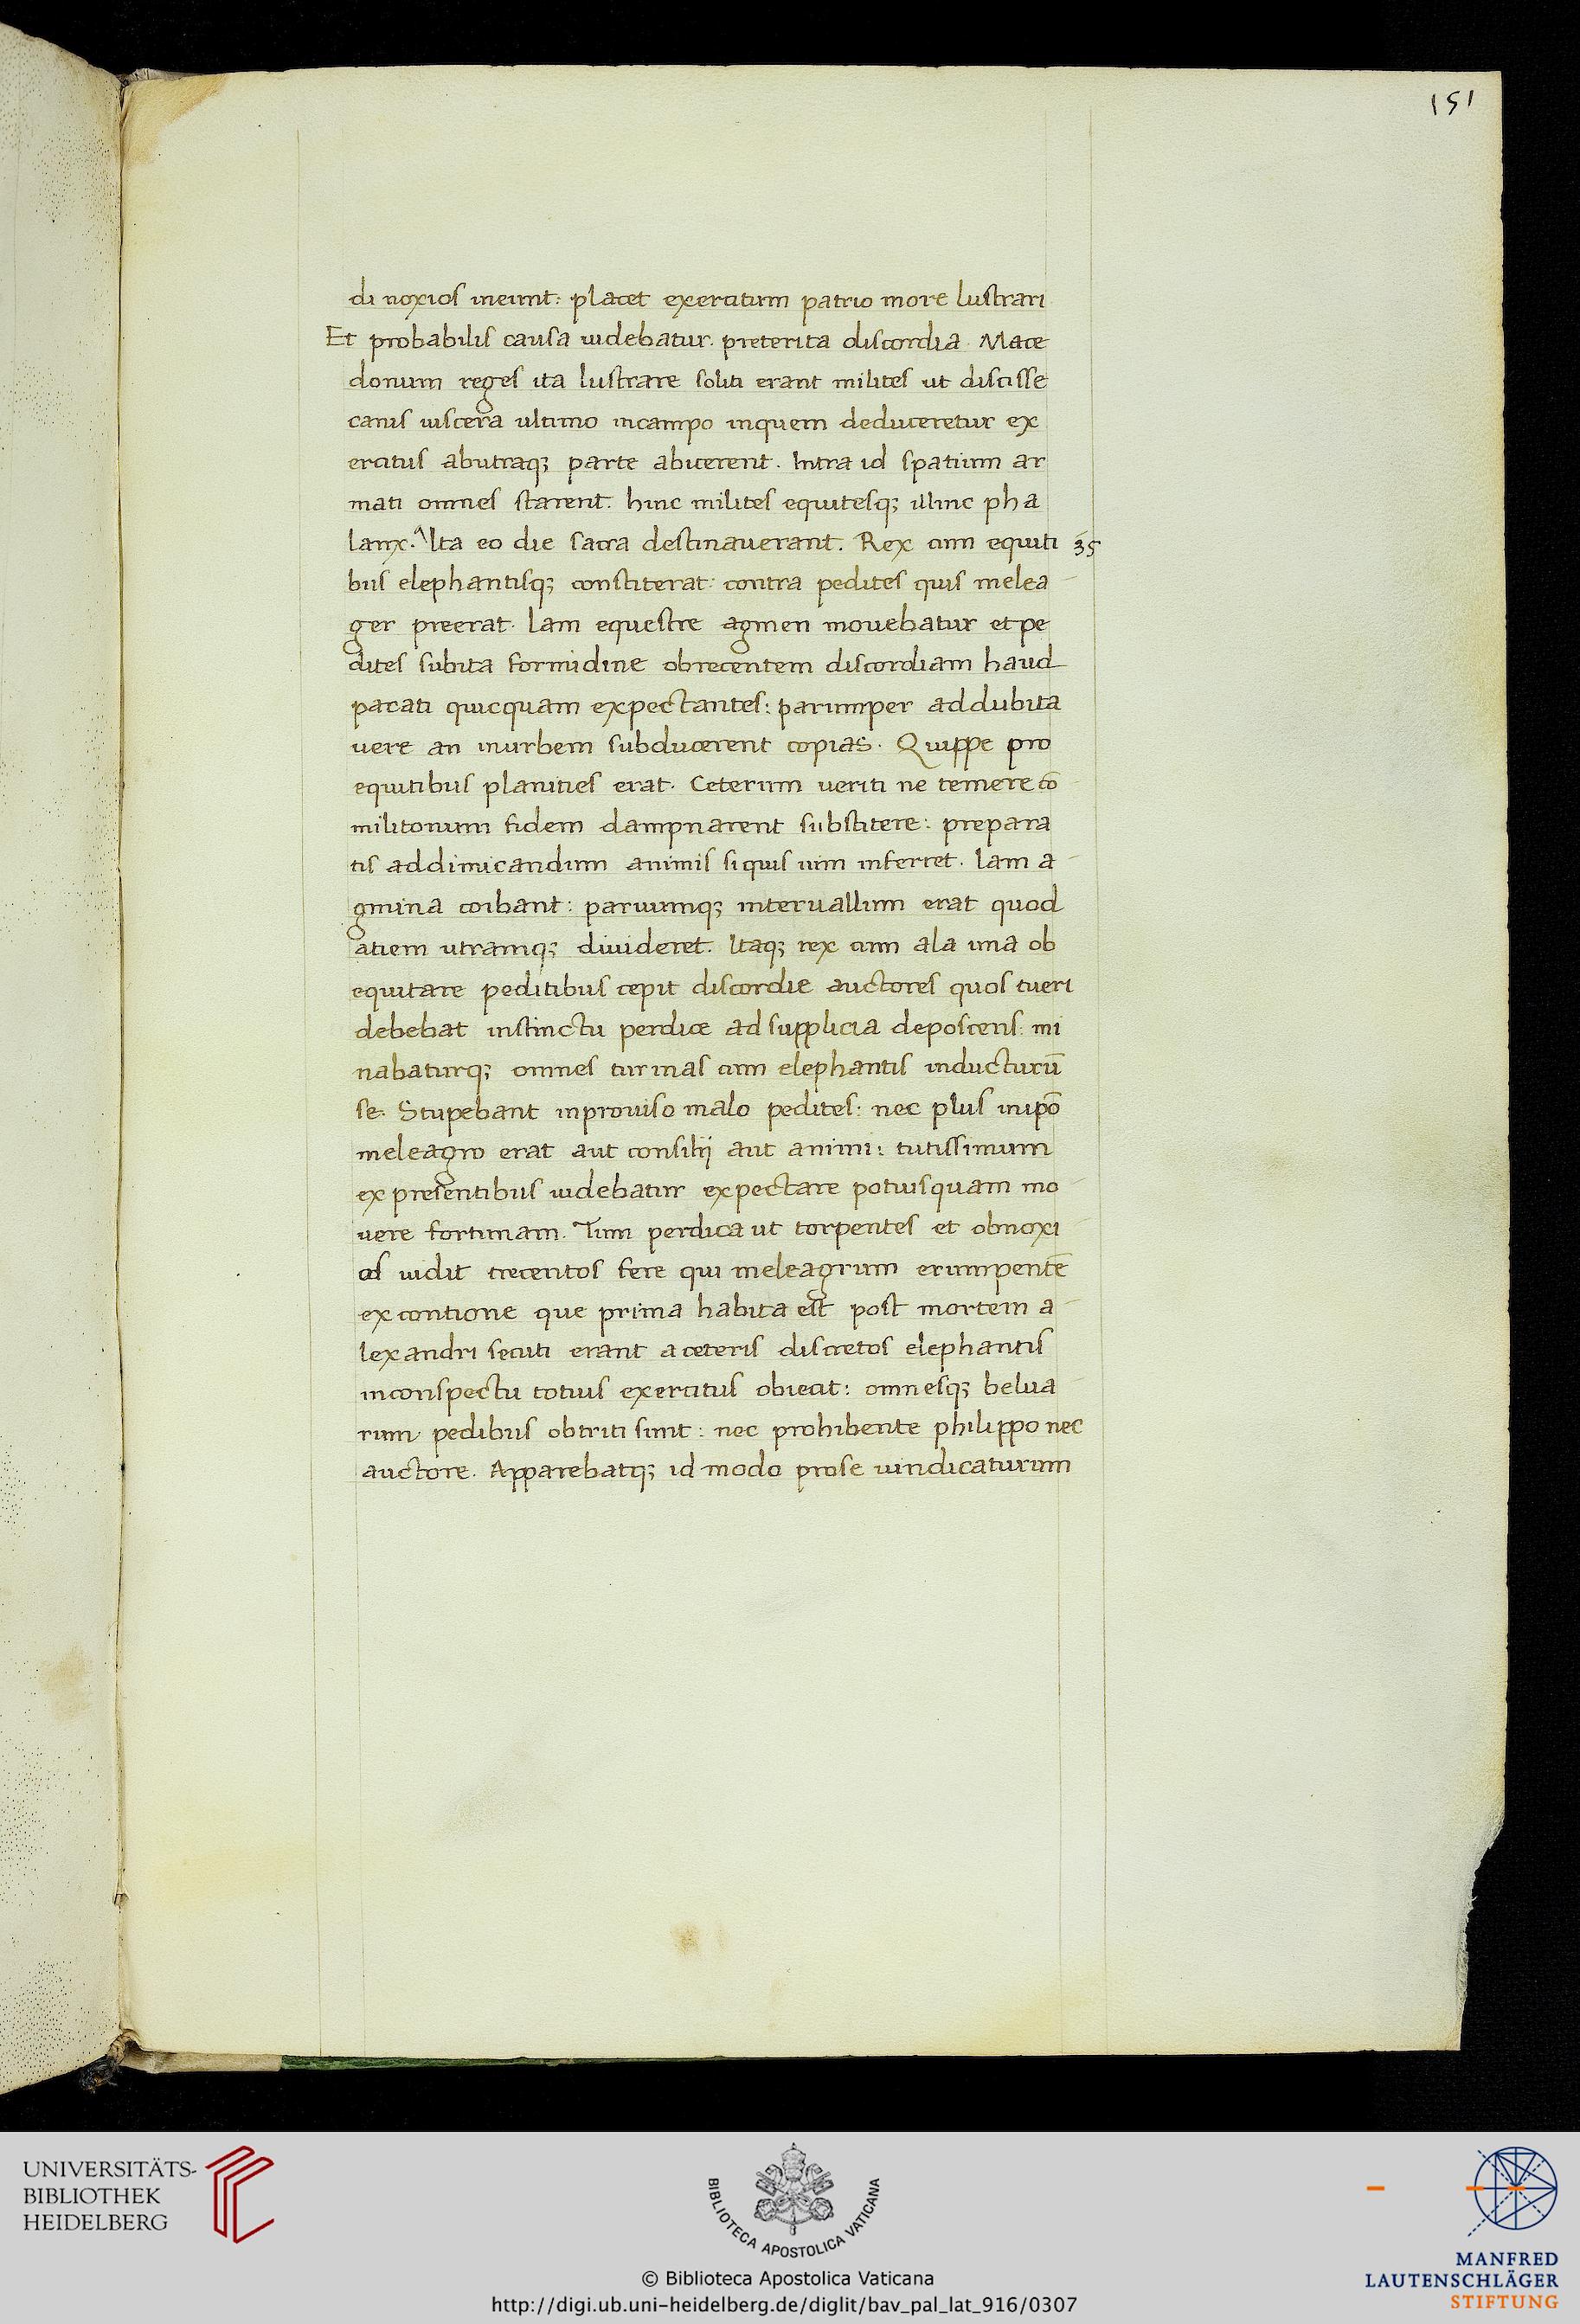 151
di noxios ineunt: placet exercitum patrio more lustrari
Et probabilis causa uidebatur. preterita discordia. Mace
donum reges ita lustrare soliti erant milites ut discisse
canis uiscera ultimo incampo inquem deduceretur ex
ercitus abutraq; parte abicerent. Intra id spatium ar
mati omnes starent. hinc milites equitesq; illinc pha
lanx. Ita eo die sacra destinauerant. Rex cum equiti 35
bus elephantisq; constiterat: contra pedites quis melea
ger preerat. Iam equestre agmen mouebatur et pe
dites subita formidine obrecentem discordiam haud
pacati quicquam expectantes: parumper addubita
uere an inurbem subducerent copias. Quippe pro
equitibus planities erat. Ceterum ueriti ne temere cō
militonum fidem dampnarent substitere: prepara
tis addimicandum animis siquis uim inferret. Iam a
gmina coibant: paruumq; interuallum erat quod
aciem utramq; diuideret. Itaq; rex cum ala una ob
equitare peditibus cepit discordie auctores quos tueri
debebat instinctu perdice ad supplicia deposcens: mi
nabaturq; omnes turmas cum elephantis inducturū
se. Stupebant inprouiso malo pedites: nec plus inipō
meleagro erat aut consilij aut animi: tutissimum
ex presentibus uidebatur expectare potiusquam mo
uere fortunam. Tum perdica ut torpentes et obnoxi
os uidit trecentos fere qui meleagrum erumpentē
ex contione que prima habita est post mortem a
lexandri secuti erant aceteris discretos elephantis
inconspectu totius exercitus obiecit: omnesq; belua
rum pedibus obtriti sunt: nec prohibente philippo nec
auctore. Apparebatq; id modo prose uindicaturum
UNIVERSITÄTS-
BIBLIOTHEK
HEIDELBERG
BIBLIOTECA APOSTOLICA VATICANA
© Biblioteca Apostolica Vaticana
http://digi.ub.uni-heidelberg.de/diglit/bav_pal_lat_916/0307
MANFRED
LAUTENSCHLÄGER
STIFTUNG